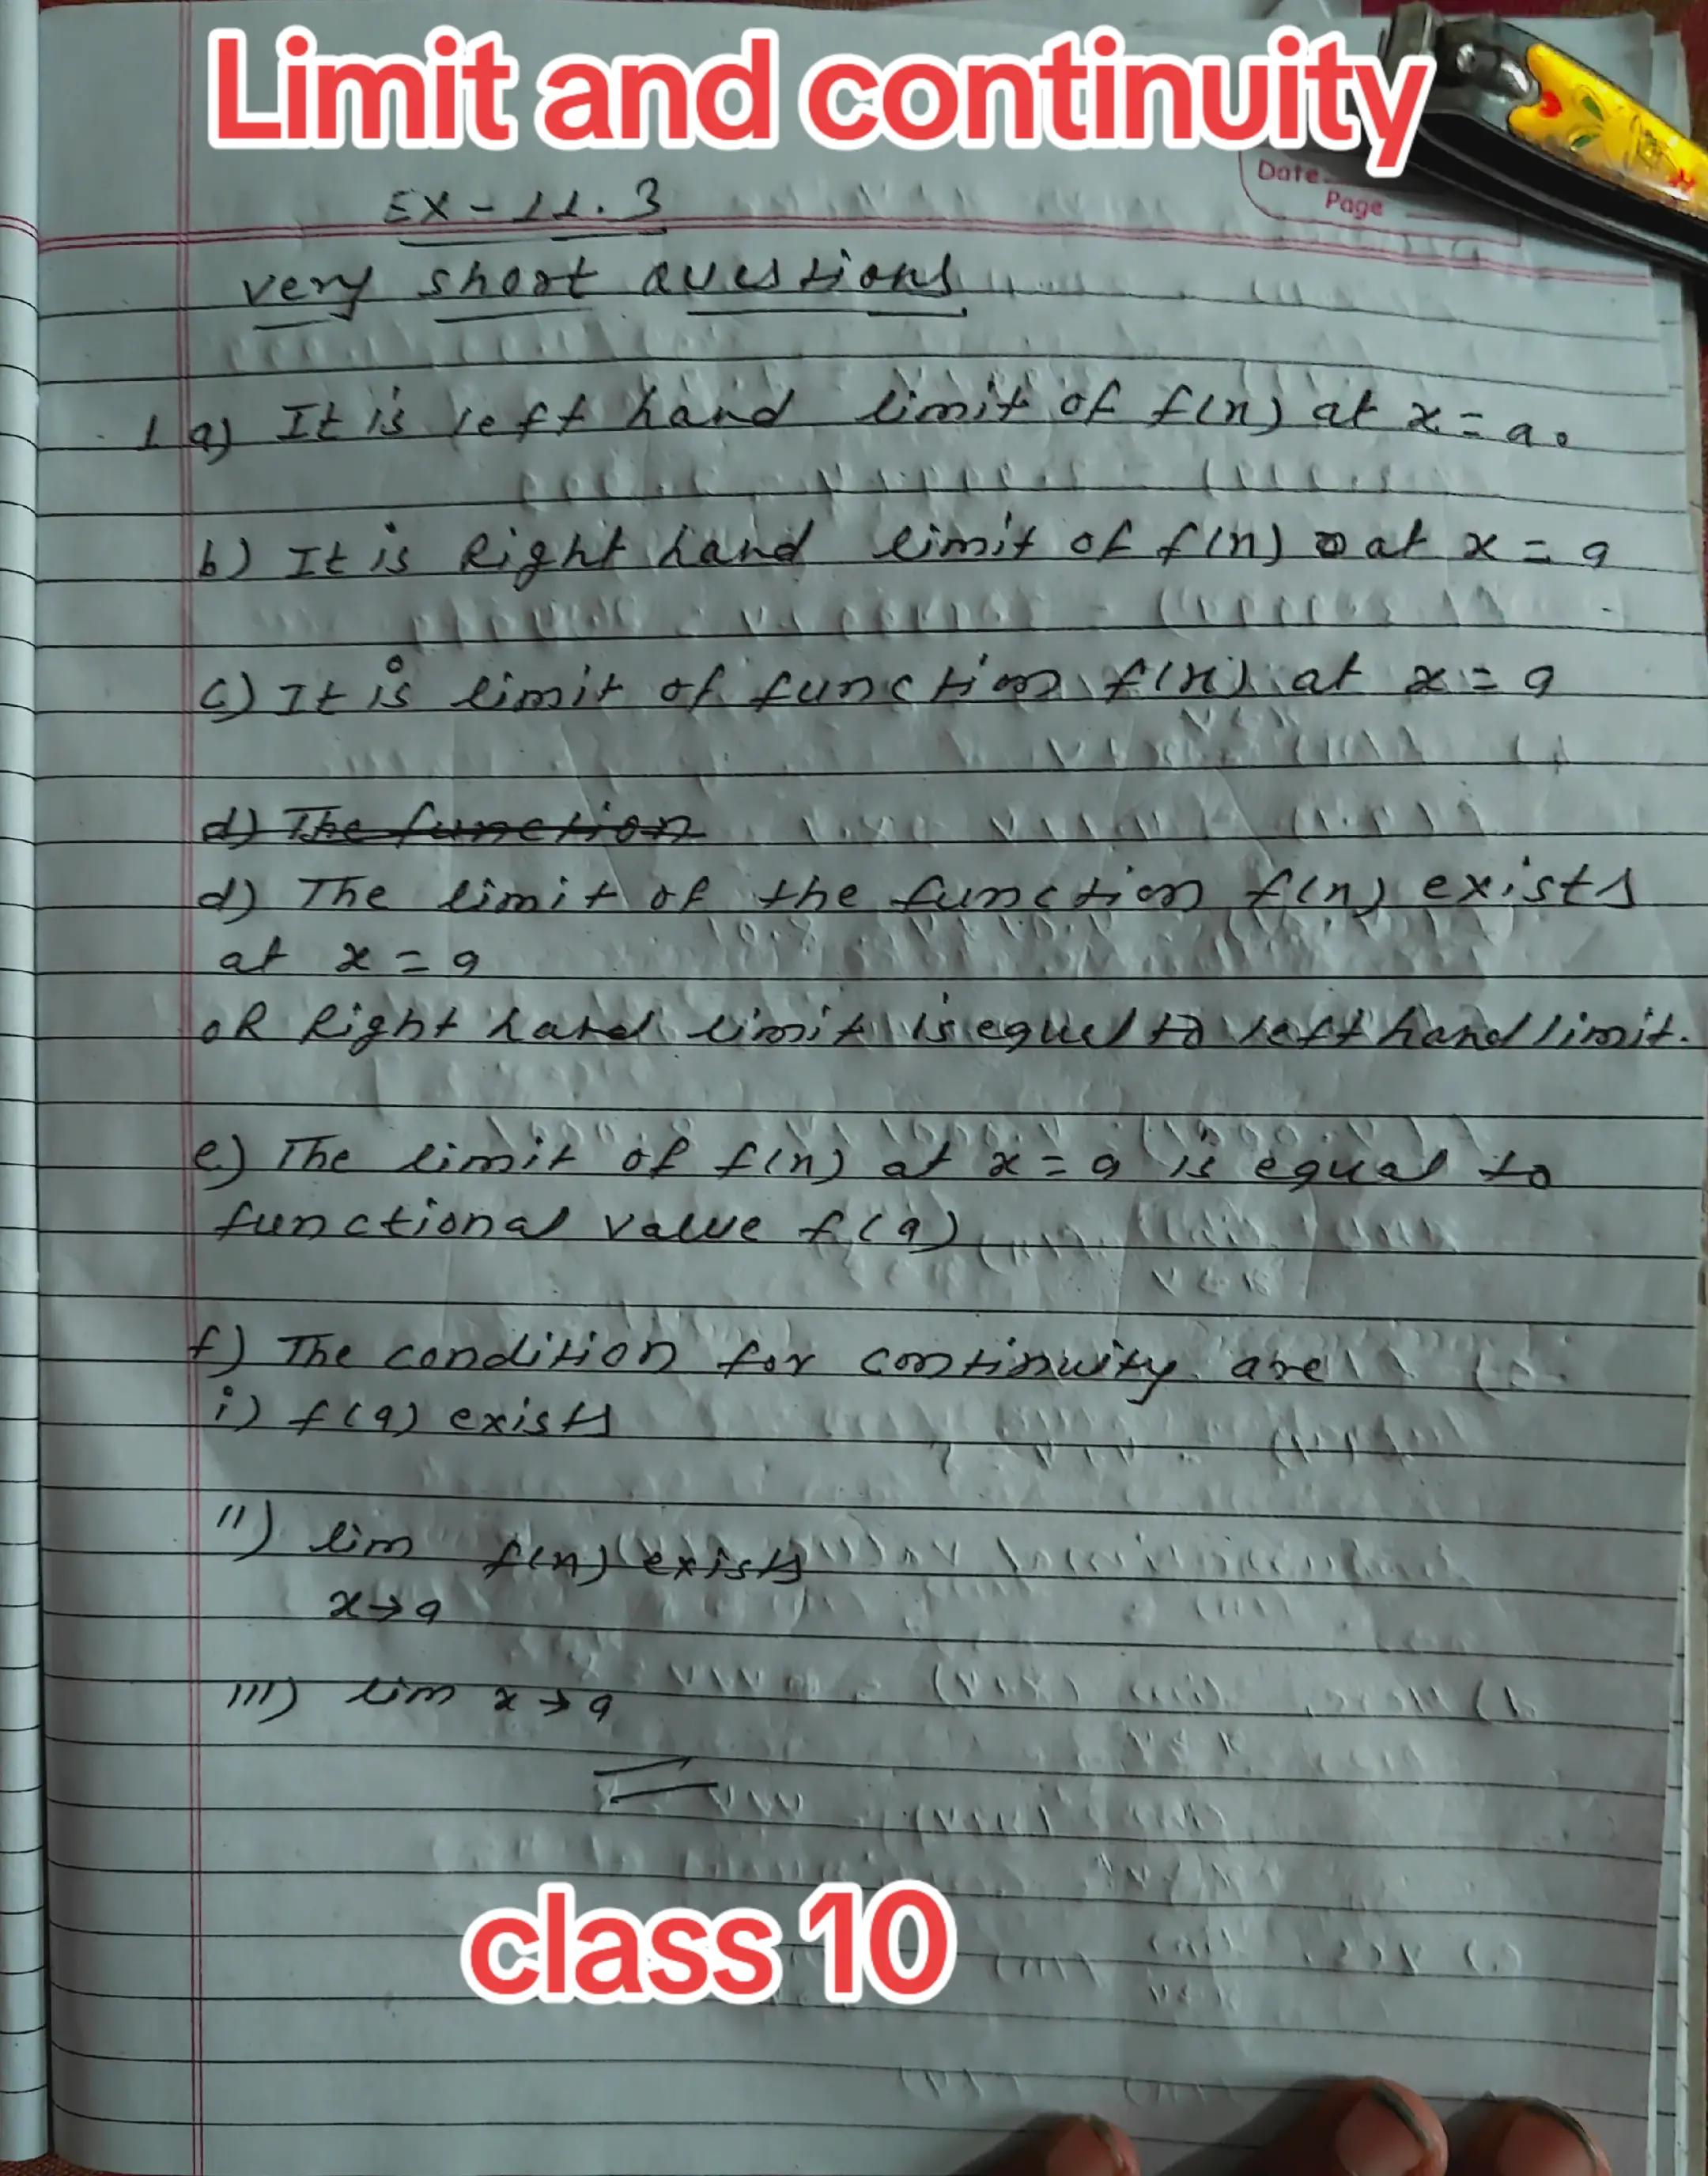 Limit and continuity
Date
Page
EX-11.3
very short questions
1 a) It is left hand limit of f(x) at x = a.
b) It is Right hand limit of f(x) at x = a
c) It is limit of function f(x) at x = a
d) The function
d) The limit of the function f(x) exists
at x = a
OR Right hand limit is equel to left hand limit.
e) The limit of f(x) at x = a is equal to
functional value f(a)
f) The condition for continuity are
i) f(a) exists
ii) lim f(x) exists
x→a
iii) lim x→a
class 10